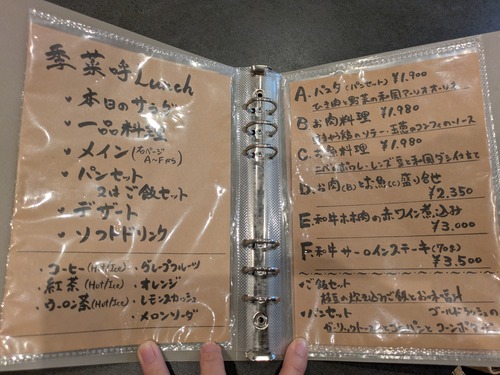 季菜呼Lunch
・本日のサラダ
・一品料理
・メイン(右ページA〜Fから)
・パンセット
又はご飯セット
・デザート
・ソフトドリンク
・コーヒー(Hot/Ice)・グレープフルーツ
・紅茶(Hot/Ice)・オレンジ
・ウーロン茶(Hot/Ice)・レモンスカッシュ
・メロンソーダ
A. パスタ(パンセット) ¥1,900
ひき肉と野菜の和風
B. お肉料理 ¥1,980
のソテー 玉葱のコンフィのソース
C. お魚料理 ¥1,980
ポワレ・レンズ豆と和風ダシ仕立て
D. お肉(B)とお魚(C)盛り合せ
¥2,350
E. 和牛ホホ肉の赤ワイン煮込み
¥3,000
F. 和牛サーロインステーキ(70g)
¥3,500
・ご飯セット
炊き込みご飯とお味噌汁
・パンセット ゴールドラッシュの
ガーリックトースト